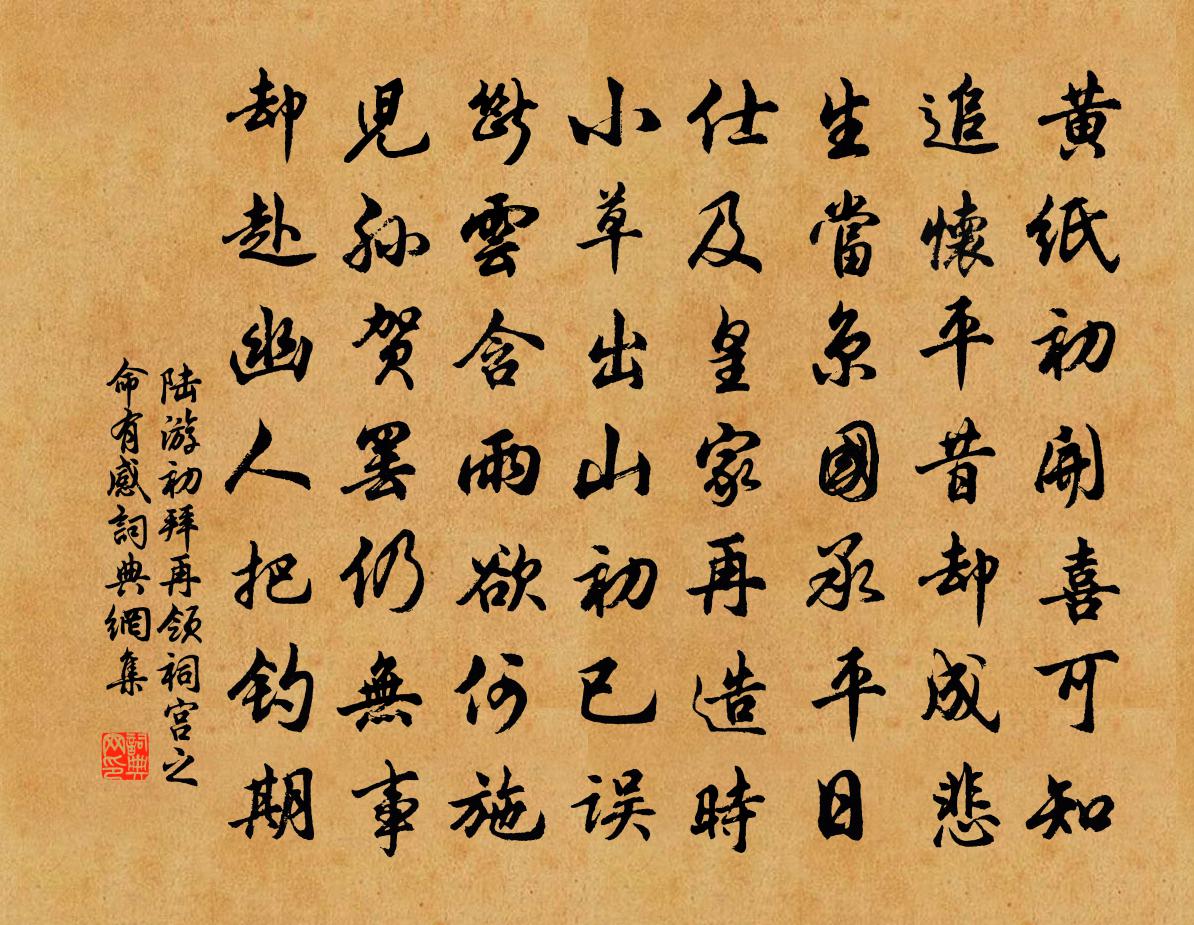 黄紙初開喜可知
追懷平昔却成悲
生當京國承平日
仕及皇家再造時
小草出山初已誤
斷雲含雨欲何施
兒孙贺罢仍無事
却赴幽人把钓期
陆游初拜再领祠宫之
命有感詞典網集
詞典
网印